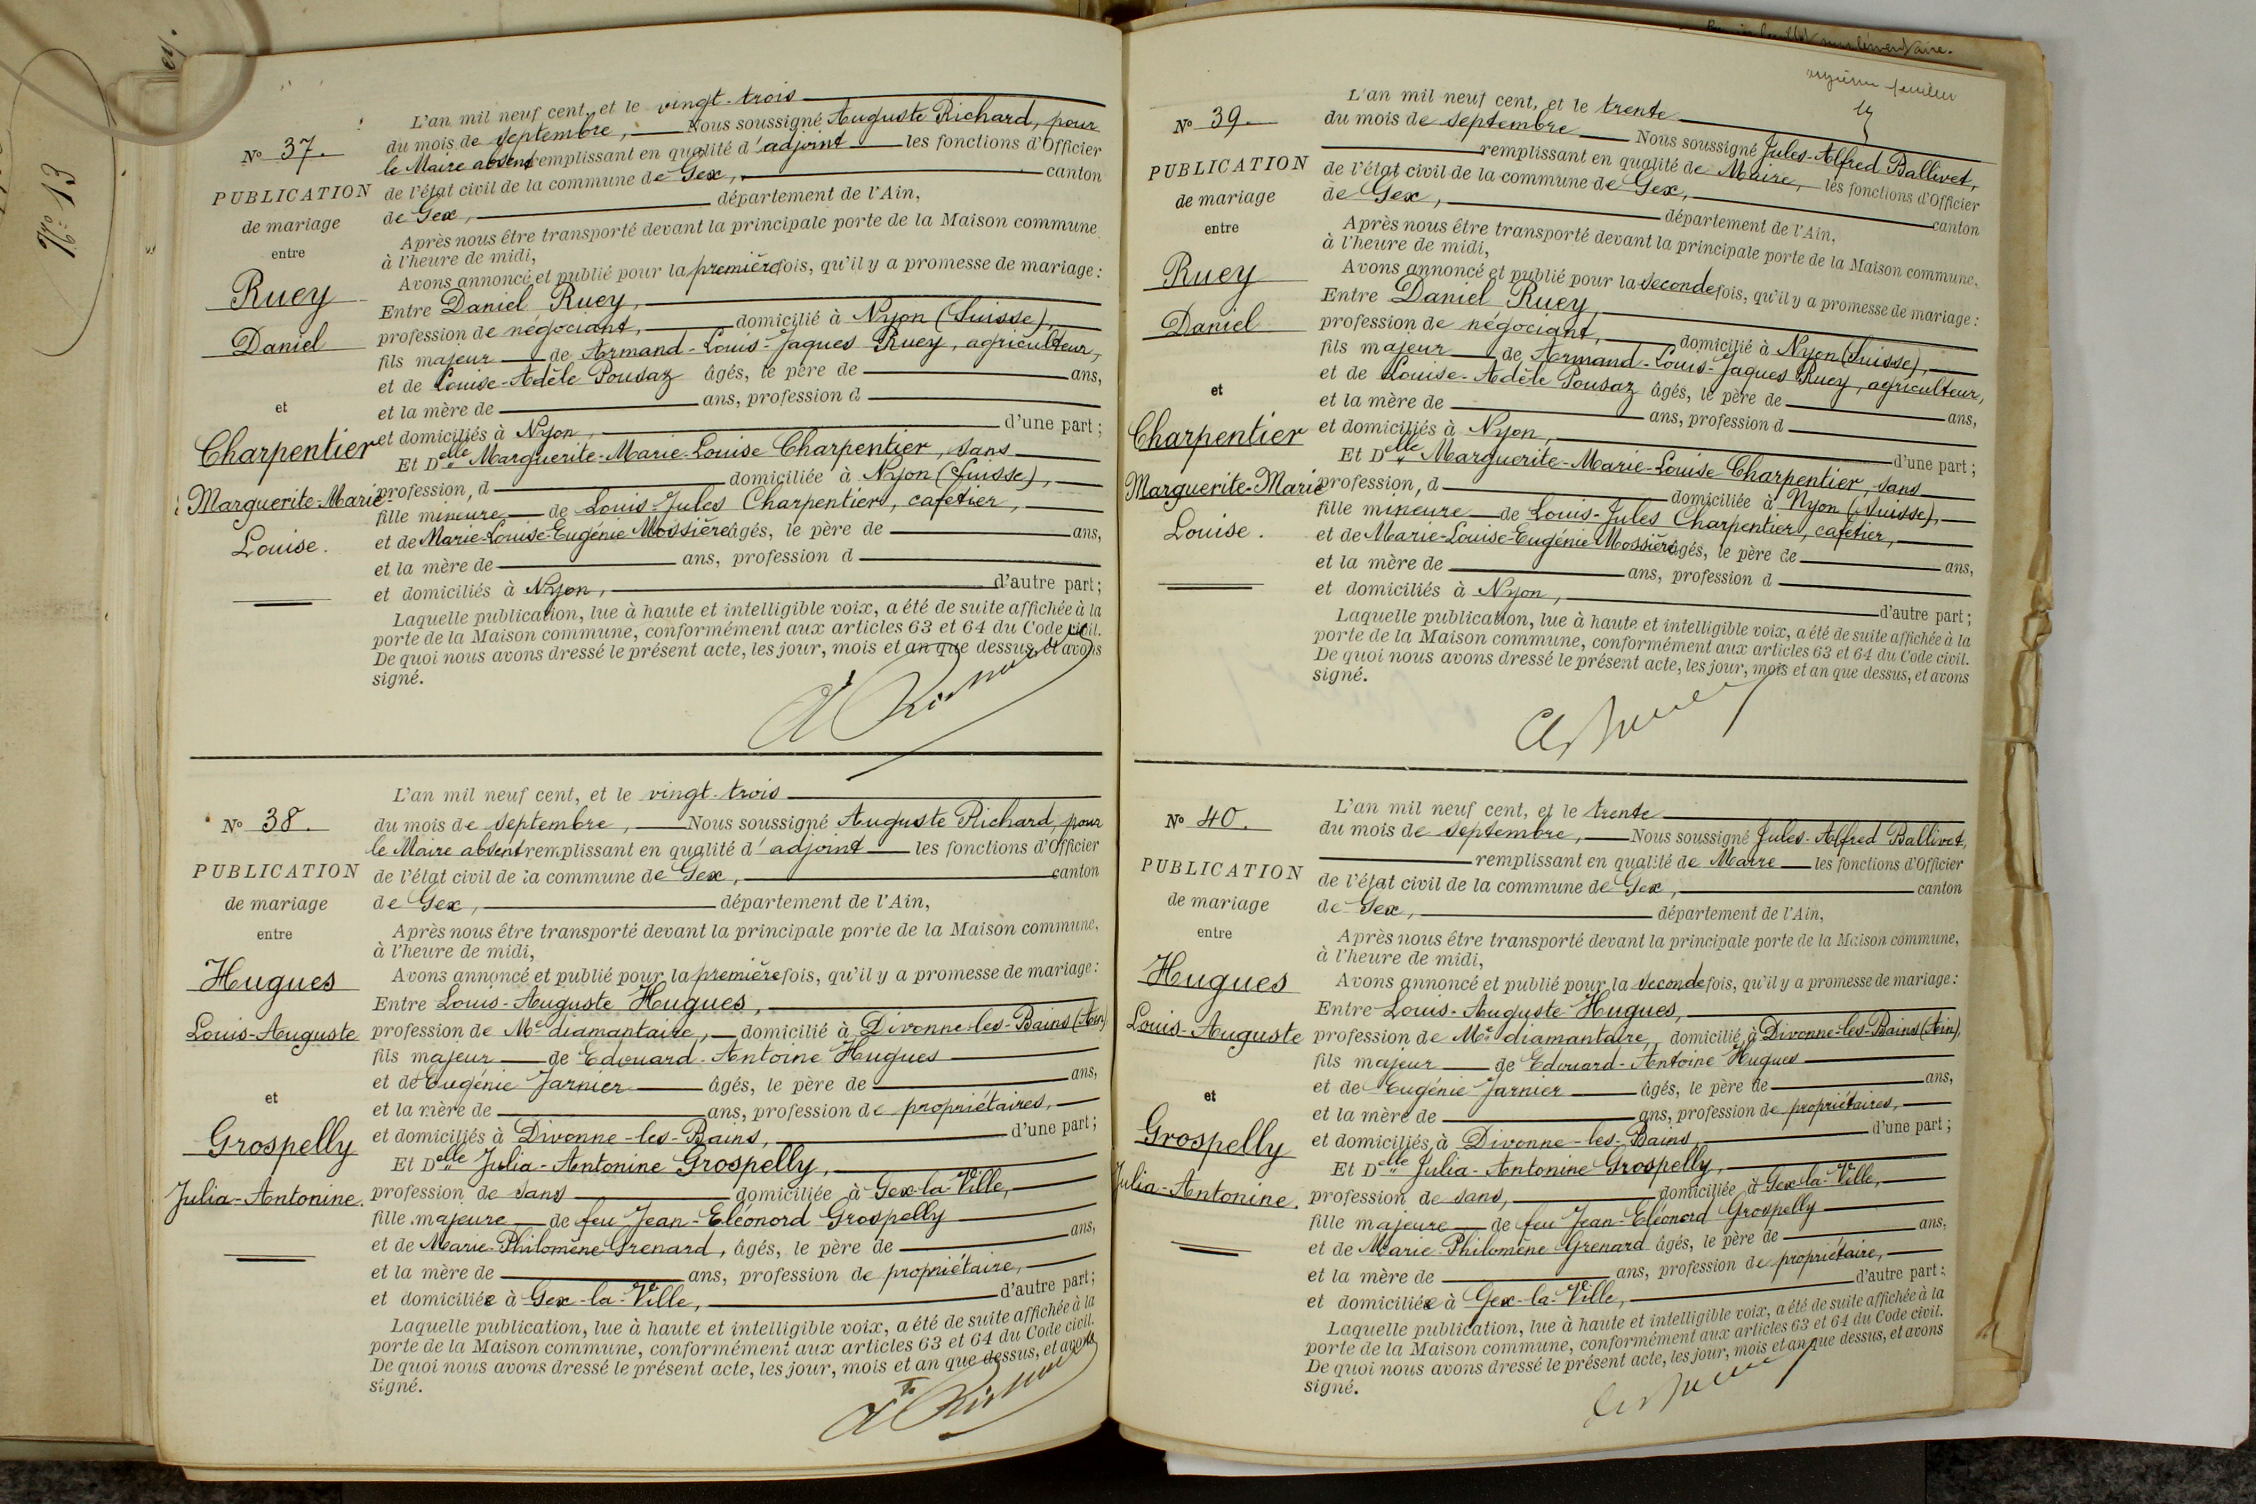 N° 13
N° 37.
PUBLICATION
de mariage
entre
Ruey
Daniel
et
Charpentier
Marguerite-Marie-
Louise.
L'an mil neuf cent, et le vingt-trois
du mois de septembre, Nous soussigné Auguste Richard, pour
le Maire absent remplissant en qualité d'adjoint les fonctions d'Officier
de l'état civil de la commune de Gex, canton
de Gex, département de l'Ain,
Après nous être transporté devant la principale porte de la Maison commune
à l'heure de midi,
Avons annoncé et publié pour la première fois, qu'il y a promesse de mariage:
Entre Daniel Ruey,
profession de négociant, domicilié à Nyon (Suisse),
fils majeur de Armand-Louis-Jaques Ruey, agriculteur,
et de Louise-Adèle Pousaz âgés, le père de ans,
et la mère de ans, profession d
et domiciliés à Nyon, d'une part;
Et Delle Marguerite-Marie-Louise Charpentier, sans
profession, d domiciliée à Nyon (Suisse),
fille mineure de Louis-Jules Charpentier, cafetier,
et de Marie-Louise-Eugénie Mossière âgés, le père de ans,
et la mère de ans, profession d
et domiciliés à Nyon, d'autre part;
Laquelle publication, lue à haute et intelligible voix, a été de suite affichée à la
porte de la Maison commune, conformément aux articles 63 et 64 du Code civil.
De quoi nous avons dressé le présent acte, les jour, mois et an que dessus, et avons
signé.
A Richard
N° 38.
PUBLICATION
de mariage
entre
Hugues
Louis-Auguste
et
Grospelly
Julia-Antonine.
L'an mil neuf cent, et le vingt-trois
du mois de septembre, Nous soussigné Auguste Richard, pour
le Maire absent remplissant en qualité d'adjoint les fonctions d'Officier
de l'état civil de la commune de Gex, canton
de Gex, département de l'Ain,
Après nous être transporté devant la principale porte de la Maison commune,
à l'heure de midi,
Avons annoncé et publié pour la première fois, qu'il y a promesse de mariage:
Entre Louis-Auguste Hugues,
profession de Md diamantaire, domicilié à Divonne-les-Bains (Ain)
fils majeur de Edouard-Antoine Hugues
et de Eugénie Jarnier âgés, le père de ans,
et la mère de ans, profession de propriétaires,
et domiciliés à Divonne-les-Bains, d'une part;
Et Delle Julia-Antonine Grospelly,
profession de sans domiciliée à Gex-la-Ville,
fille majeure de feu Jean-Eléonord Grospelly
et de Marie-Philomène Grenard, âgés, le père de ans,
et la mère de ans, profession de propriétaire,
et domiciliée à Gex-la-Ville, d'autre part;
Laquelle publication, lue à haute et intelligible voix, a été de suite affichée à la
porte de la Maison commune, conformément aux articles 63 et 64 du Code civil.
De quoi nous avons dressé le présent acte, les jour, mois et an que dessus, et avons
signé.
A Richard
N° 39.
PUBLICATION
de mariage
entre
Ruey
Daniel
et
Charpentier
Marguerite-Marie
Louise.
L'an mil neuf cent, et le trente
du mois de septembre Nous soussigné Jules-Alfred Ballivet,
remplissant en qualité de Maire, les fonctions d'Officier
de l'état civil de la commune de Gex, canton
de Gex, département de l'Ain,
Après nous être transporté devant la principale porte de la Maison commune,
à l'heure de midi,
Avons annoncé et publié pour la seconde fois, qu'il y a promesse de mariage:
Entre Daniel Ruey,
profession de négociant, domicilié à Nyon (Suisse),
fils majeur de Armand-Louis-Jaques Ruey, agriculteur,
et de Louise-Adèle Pousaz âgés, le père de ans,
et la mère de ans, profession d
et domiciliés à Nyon, d'une part;
Et Delle Marguerite-Marie-Louise Charpentier, sans
profession, d domiciliée à Nyon (Suisse),
fille mineure de Louis-Jules Charpentier, cafetier,
et de Marie-Louise-Eugénie Mossière âgés, le père de ans,
et la mère de ans, profession d
et domiciliés à Nyon, d'autre part;
Laquelle publication, lue à haute et intelligible voix, a été de suite affichée à la
porte de la Maison commune, conformément aux articles 63 et 64 du Code civil.
De quoi nous avons dressé le présent acte, les jour, mois et an que dessus, et avons
signé.
N° 40.
PUBLICATION
de mariage
entre
Hugues
Louis-Auguste
et
Grospelly
Julia-Antonine.
L'an mil neuf cent, et le trente
du mois de septembre, Nous soussigné Jules-Alfred Ballivet,
remplissant en qualité de Maire les fonctions d'Officier
de l'état civil de la commune de Gex, canton
de Gex, département de l'Ain,
Après nous être transporté devant la principale porte de la Maison commune,
à l'heure de midi,
Avons annoncé et publié pour la seconde fois, qu'il y a promesse de mariage:
Entre Louis-Auguste Hugues,
profession de Md diamantaire, domicilié à Divonne-les-Bains (Ain),
fils majeur de Edouard-Antoine Hugues
et de Eugénie Jarnier âgés, le père de ans,
et la mère de ans, profession de propriétaires,
et domiciliés à Divonne-les-Bains, d'une part;
Et Delle Julia-Antonine Grospelly,
profession de sans, domiciliée à Gex-la-Ville,
fille majeure de feu Jean-Eléonord Grospelly
et de Marie-Philomène Grenard âgés, le père de ans,
et la mère de ans, profession de propriétaire,
et domiciliée à Gex-la-Ville, d'autre part;
Laquelle publication, lue à haute et intelligible voix, a été de suite affichée à la
porte de la Maison commune, conformément aux articles 63 et 64 du Code civil.
De quoi nous avons dressé le présent acte, les jour, mois et an que dessus, et avons
signé.